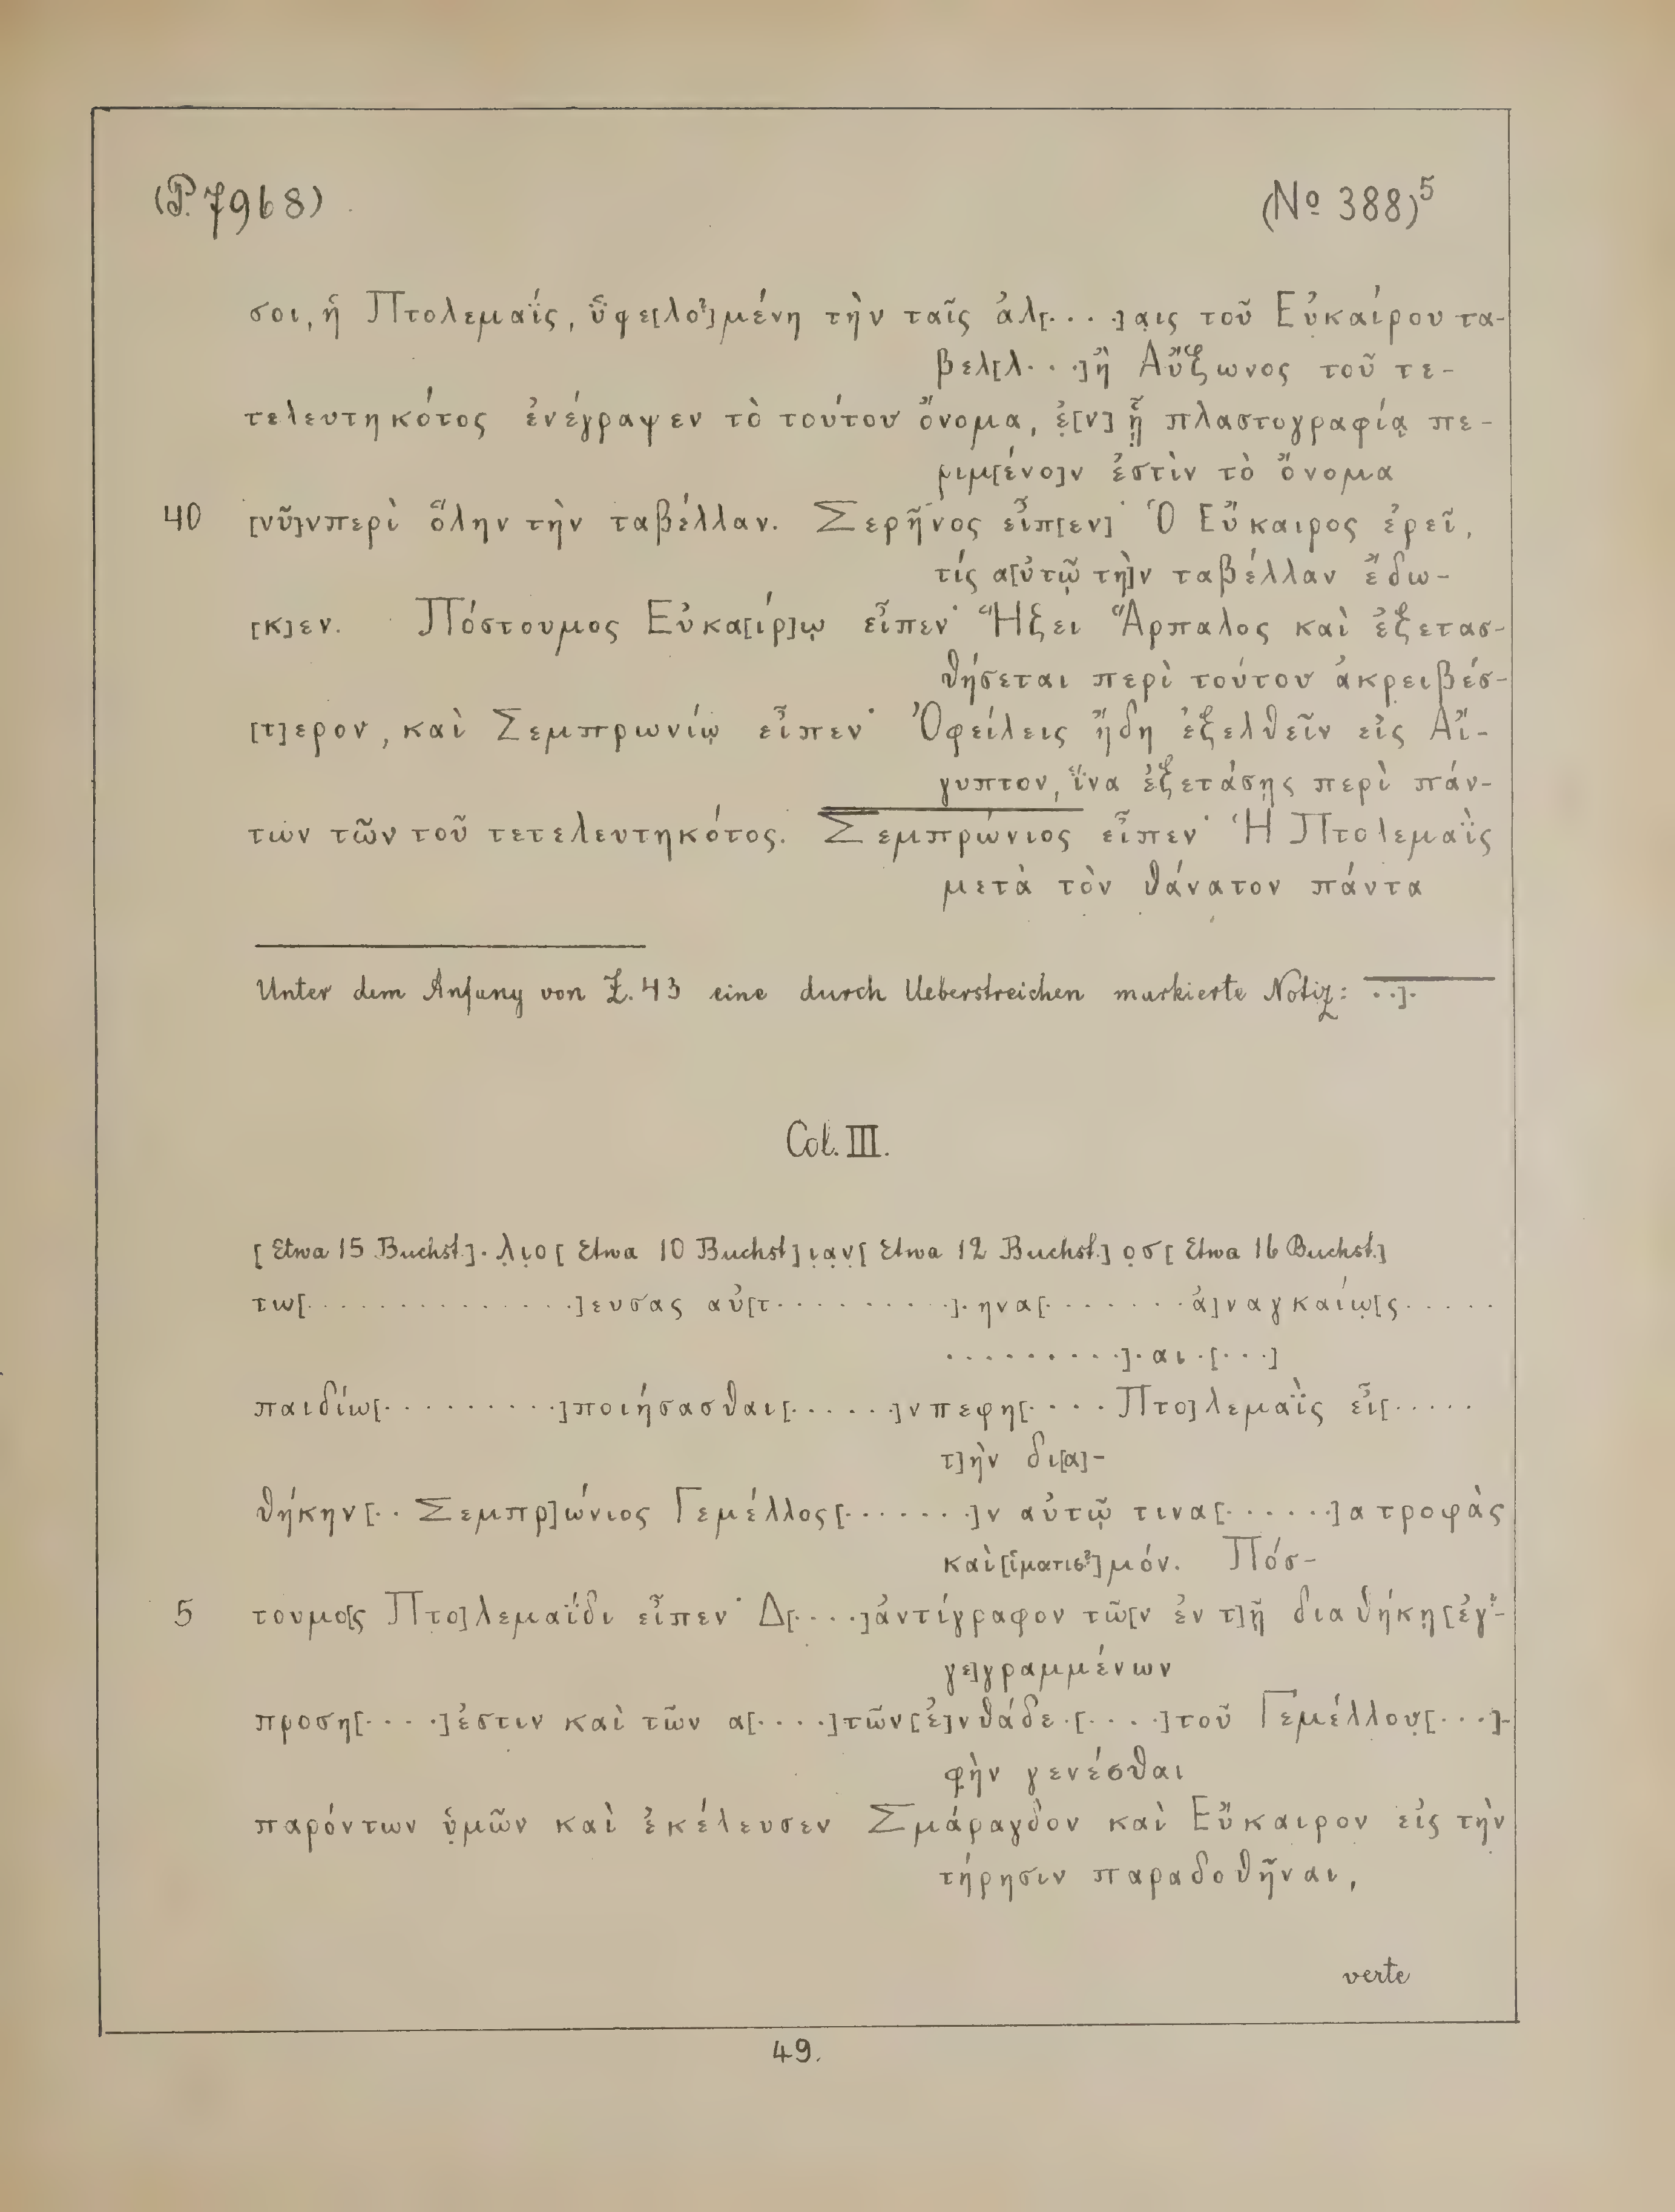 (P. 7968)
(Nº 388)⁵
σοι, ἡ Πτολεμαΐς, ὑφε[λο?]μένη τὴν ταῖς ἀλ[. . . .]αις τοῦ Εὐκαίρου τα-
βελ[λ. . .]ἢ Αὔξωνος τοῦ τε-
τελευτηκότος ἐνέγραψεν τὸ τούτου ὄνομα, ἐ[ν] ᾗ πλαστογραφίᾳ πε-
ριμ[ένο]ν ἐστὶν τὸ ὄνομα
40 [νῦ]νπερὶ ὅλην τὴν ταβέλλαν. Σερῆνος εἶπ[εν]˙ Ὁ Εὔκαιρος ἐρεῖ,
τίς α[ὐτῷ τὴ]ν ταβέλλαν ἔδω-
[κ]εν. Πόστουμος Εὐκα[ίρ]ῳ εἶπεν˙ Ἥξει Ἅρπαλος καὶ ἐξετασ-
θήσεται περὶ τούτου ἀκρειβέσ-
[τ]ερον, καὶ Σεμπρωνίῳ εἶπεν˙ Ὀφείλεις ἤδη ἐξελθεῖν εἰς Αἴ-
γυπτον, ἵνα ἐξετάσῃς περὶ πάν-
των τῶν τοῦ τετελευτηκότος. Σεμπρώνιος εἶπεν˙ Ἡ Πτολεμαῒς
μετὰ τὸν θάνατον πάντα
Unter dem Anfang von Z. 43 eine durch Ueberstreichen markierte Notiz: . .].
Col. III.
[Etwa 15 Buchst.]. λιο[Etwa 10 Buchst]ιαν[Etwa 12 Buchst.]οσ[Etwa 16 Buchst.]
τω[. . . . . . . . . . . . . . .]ευσας αὐ[τ. . . . . . . . . .]. ηνα[. . . . . . . . ἀ]ναγκαίω[ς. . . . .
. . . . . . . . . .]. αι .[. . .]
παιδίω[. . . . . . . . . .]ποιήσασθαι[. . . . . .]νπεφη[. . . . Πτο]λεμαῒς εἶ[. . . . .
τ]ὴν δι[α]-
θήκην[. . Σεμπρ]ώνιος Γεμέλλος[. . . . . . . .]ν αὐτῷ τινα[. . . . . .]α τροφὰς
καὶ[ἱματισ?]μόν. Πόσ-
5 τουμο[ς Πτο]λεμαΐδι εἶπεν˙ Δ[. . . .]ἀντίγραφον τῶ[ν ἐν τ]ῇ διαθήκῃ[ἐγ?-
γε]γραμμένων
προση[. . . .]ἐστιν καὶ τῶν α[. . . .]τῶν[ἐ]νθάδε .[. . . .]τοῦ Γεμέλλου[. . .]-
φὴν γενέσθαι
παρόντων ὑμῶν καὶ ἐκέλευσεν Σμάραγδον καὶ Εὔκαιρον εἰς τὴν
τήρησιν παραδοθῆναι,
verte
49.